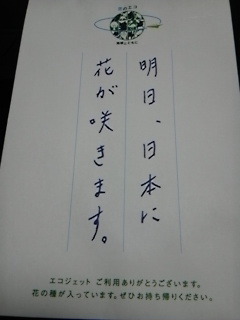 明日、日本に
花が咲きます。
エコジェット ご利用ありがとうございます。
花の種が入っています。ぜひお持ち帰りください。